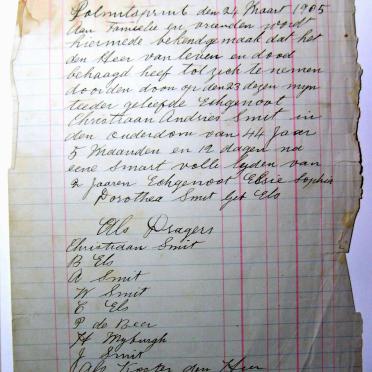 Palmitspruit den 24 Maart 1905
Aan Familie en vrienden word
hiermede bekend gemaak dat het
den Heer van leven en dood
behaagd heeft tot zich te nemen
door den dood op den 23 dezer myn
teeder geliefde Echgenoot
Christiaan Andries Smit in
den ouderdom van 44 Jaar
5 Maanden en 12 dagen na
eene smart volle lyden van
2 jaaren Echgenoot Elsie Sophia
Dorothea Smit Geb Els
Als Dragers
Christiaan Smit
B Els
A Smit
W Smit
C Els
P de Beer
H Myburgh
J Smit
Als Koster den Heer